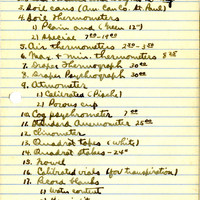 3. Soil cans (Am. Can Co. St. Paul)
4. Soil thermometers
1) Plain and (Keen 12")
2) Special 7.00-19.00
5. Air thermometers 2.50-3.50
6. Max. & min. thermometers 8.25
7. Draper Thermograph 30.00
8. Draper Psychrograph 30.00
9. Atmometer
1) Calibrated (Piche)
2) Porous cup
10. Cog psychrometer 7.00
11. Standard Anemometer 25.00
12. Clinometer
13. Quadrat tapes (White)
14. Quadrat stakes - 24"
15. Trowel
16. Calibrated vials (for transpiration)
17. Record blanks
1) Water content